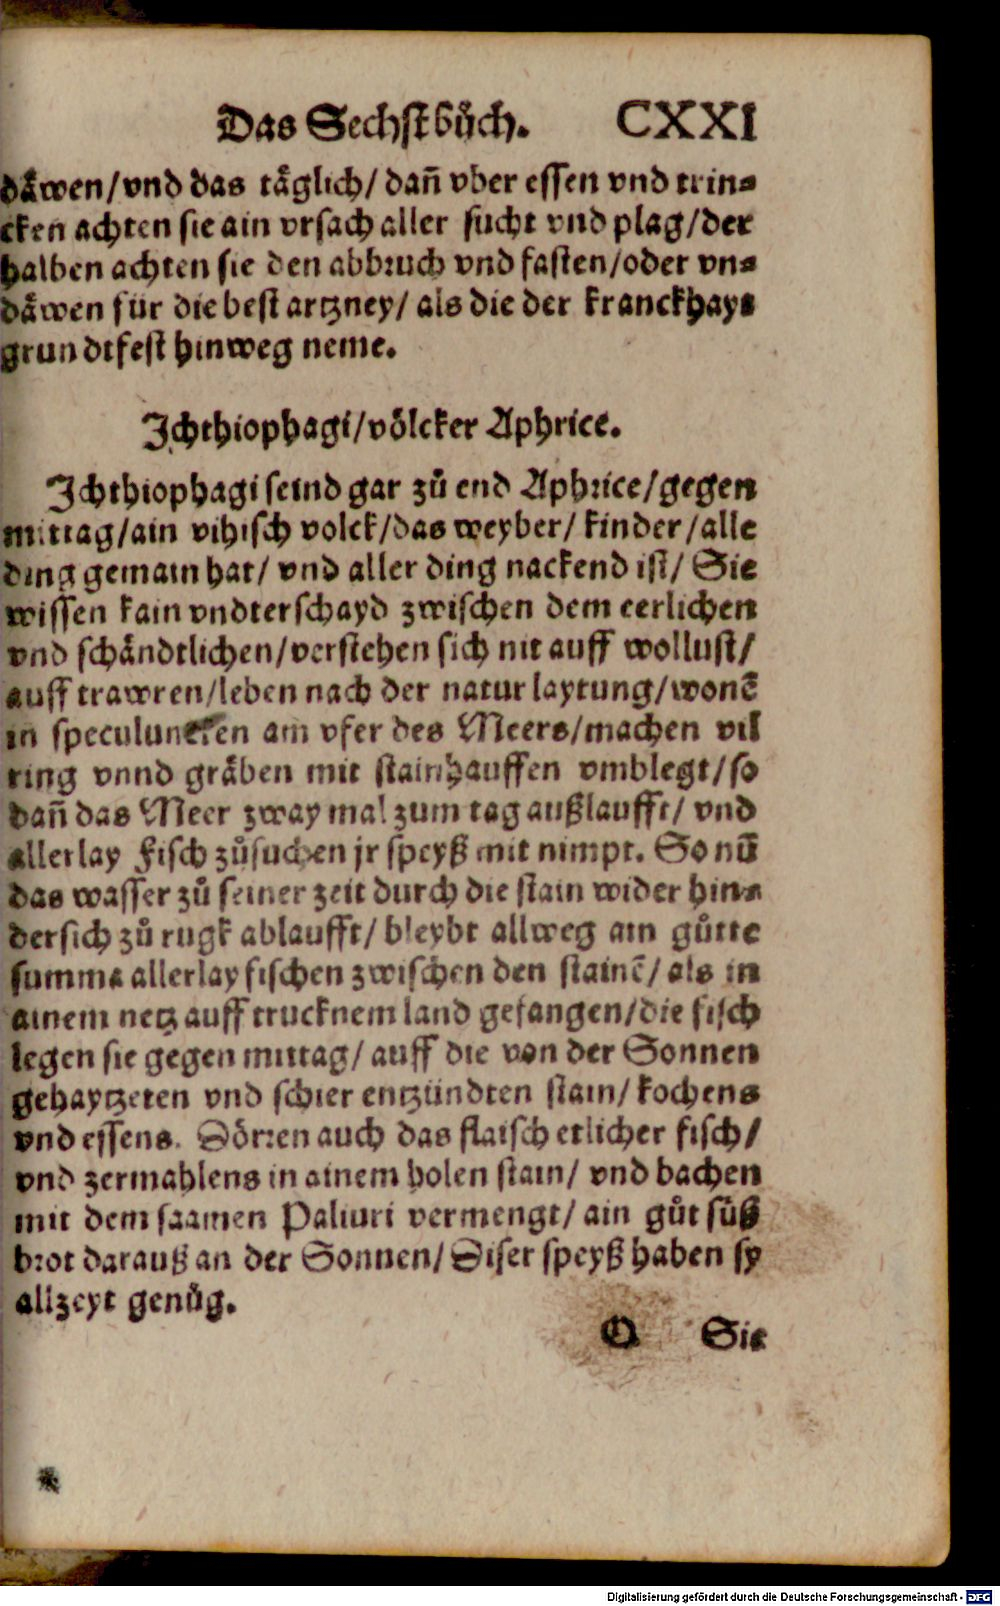 Das Sechst bůch. CXXI
däwen/vnd das täglich/dañ vber essen vnd trin=
cken achten sie ain vrsach aller sucht vnd plag/der
halben achten sie den abbruch vnd fasten/oder vn=
däwen für die best artzney/ als die der kranckhayt
grundtfest hinweg neme.
Ichthiophagi/völcker Aphrice.
Ichthiophagi seind gar zů end Aphrice/gegen
mittag/ain vihisch volck/das weyber/ kinder/alle
ding gemain hat/ vnd aller ding nackend ist/ Sie
wissen kain vndterschayd zwischen dem eerlichen
vnd schändtlichen/verstehen sich nit auff wollust/
auff trawren/leben nach der natur laytung/wonē
in speculuncken am vfer des Meers/machen vil
ring vnnd gräben mit stainhauffen vmblegt/so
dañ das Meer zway mal zum tag außlaufft/ vnd
allerlay Fisch zůsuchen jr speyß mit nimpt. So nū
das wasser zů seiner zeit durch die stain wider hin=
dersich zů rugk ablaufft/ bleybt allweg ain gůtte
summa allerlay fischen zwischen den stainē/ als in
ainem netz auff trucknem land gefangen/die fisch
legen sie gegen mittag/ auff die von der Sonnen
gehaytzeten vnd schier entzündten stain/ kochens
vnd essens. Dörren auch das flaisch etlicher fisch/
vnd zermahlens in ainem holen stain/ vnd bachen
mit dem saamen Paliuri vermengt/ ain gůt süß
brot darauß an der Sonnen/ Diser speyß haben sy
allzeyt genůg.
Q Sie
Digitalisierung gefördert durch die Deutsche Forschungsgemeinschaft - DFG